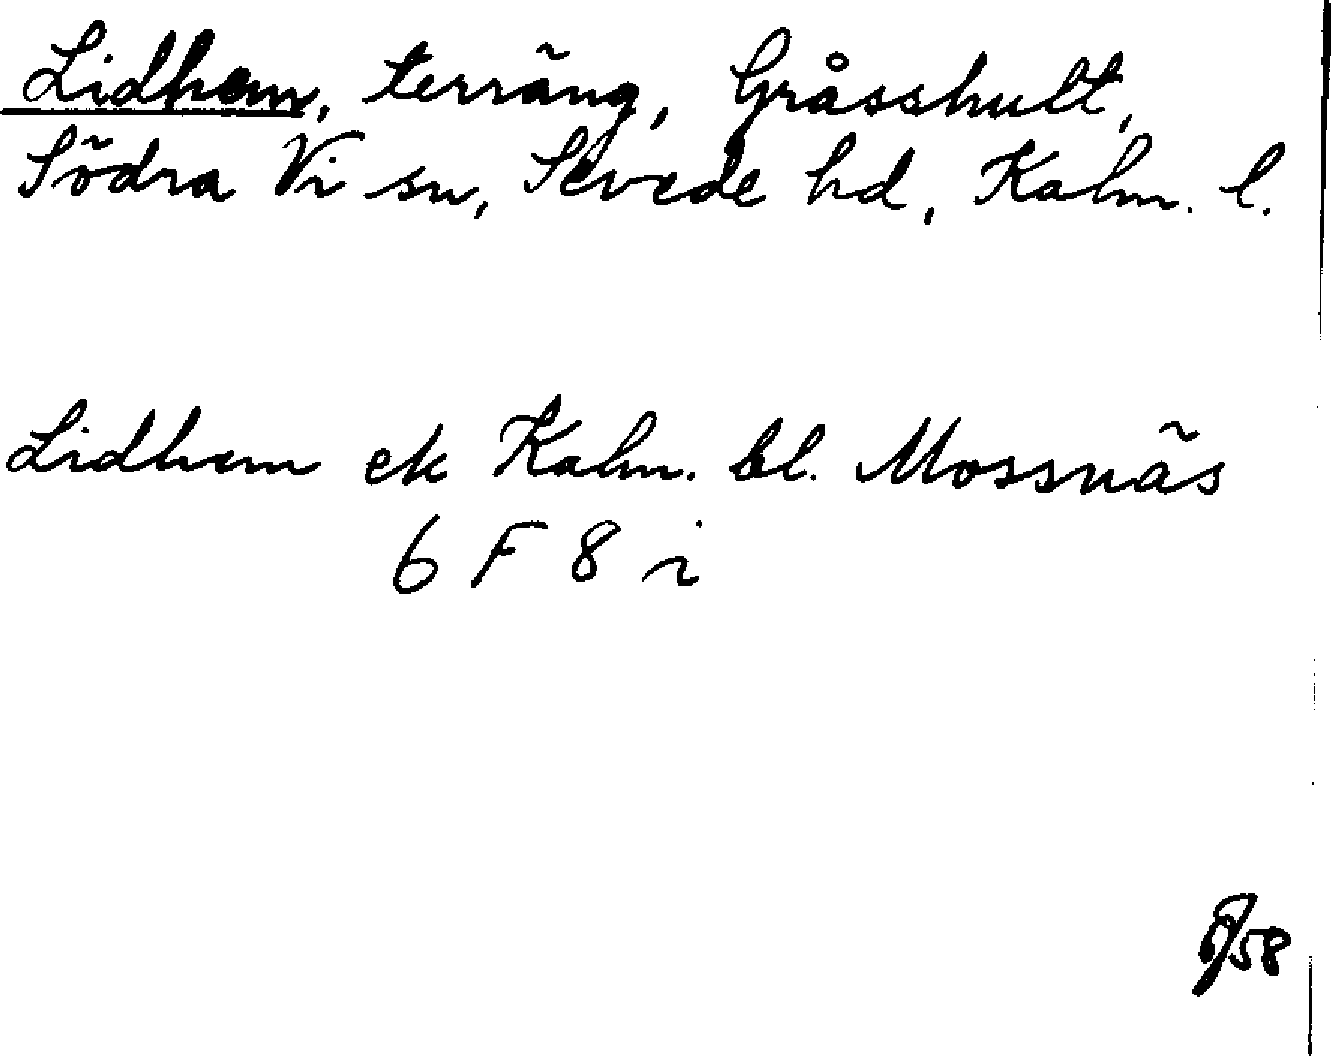 Lidhem, terräng, Gråsshult,
Södra Vi sn, Sevede hd, Kalm. l.
Lidhem ek Kalm. bl. Mossnäs
6 F 8 i